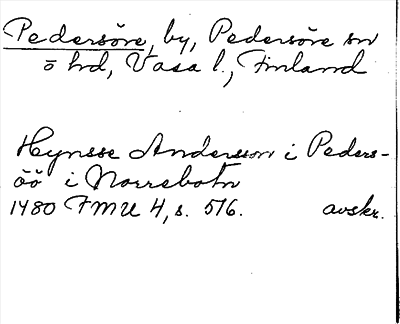 Pedersöre, by, Pedersöre sn
ö hd, Vasa l., Finland
Hynsse Andersson i Peders-
öö i Norrebotn
1480 FMU 4, s. 516. avskr.